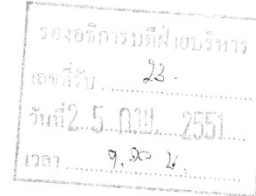 รองอธิการบดีฝ่ายบริหาร
เลขที่รับ 23.
วันที่ 25 ก.พ. 2551
เวลา 9.30 น.